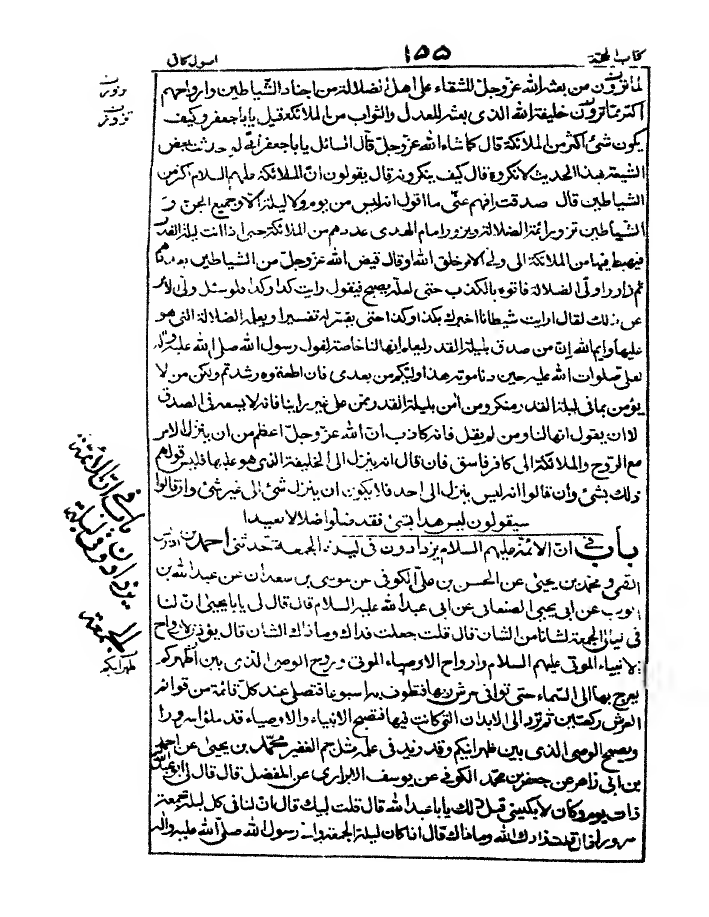 كتاب الحجة
١٥٥
اصول كافى
لما ترون من بعثه الله عز وجل للشقاء على اهل الضلالة من اجناد الشياطين وارواحهم
اكثر مما ترون خليفة الله الذى بعثه للعدل والثواب من الملائكة قيل يا با جعفر وكيف
يكون شئ اكثر من الملائكة قال كما شاء الله عز وجل قال السائل يا با جعفر انى لو حدثت بعض
الشيعة بهذا الحديث لانكروه قال كيف ينكرونه قال يقولون ان الملائكة عليهم السلام اكثر من
الشياطين قال صدقت افهم عنى ما اقول انه ليس من يوم ولا ليلة الا وجميع الجن و
الشياطين تزور ائمة الضلالة ويزور امام الهدى عددهم من الملائكة حتى اذا اتت ليلة القدر
فيهبط فيها من الملائكة الى ولى الامر خلق الله او قال قيض الله عز وجل من الشياطين بعددهم
ثم زاروا ولى الضلالة فاتوه بالكذب حتى لعله يصبح فيقول رايت كذا وكذا فلو سئل ولى الامر
عن ذلك لقال رايت شيطانا اخبرك بكذا وكذا حتى يفسر له تفسيرا ويعلمه الضلالة التى هو
عليها وايم الله ان من صدق بليلة القدر ليعلم انها لنا خاصة لقول رسول الله صلى الله عليه واله
لعلى صلوات الله عليه حين دنا موته هذا وليكم من بعدى فان اطعتموه رشدتم ولكن من لا
يؤمن بما فى ليلة القدر منكر ومن امن بليلة القدر ممن على غير راينا فانه لا يسعه فى الصدق
الا ان يقول انها لنا ومن لم يقل فانه كاذب ان الله عز وجل اعظم من ان ينزل الامر
مع الروح والملائكة الى كافر فاسق فان قال انه ينزل الى الخليفة الذى هو عليها فليس قولهم
ذلك بشئ وان قالوا انه ليس ينزل الى احد فلا يكون ان ينزل شئ الى غير شئ وان قالوا
سيقولون ليس هذا بشئ فقد ضلوا ضلالا بعيدا
باب فى ان الائمة عليهم السلام يزدادون فى ليلة الجمعة حدثنى احمد بن ادريس
القمى ومحمد بن يحيى عن الحسن بن على الكوفى عن موسى بن سعدان عن عبد الله بن
ايوب عن ابى يحيى الصنعانى عن ابى عبد الله عليه السلام قال قال لى يا با يحيى ان لنا
فى ليالى الجمعة لشانا من الشان قال قلت جعلت فداك وما ذاك الشان قال يؤذن لارواح
الانبياء الموتى عليهم السلام وارواح الاوصياء الموتى وروح الوصى الذى بين اظهركم
يعرج بها الى السماء حتى توافى عرش ربها فتطوف به اسبوعا فتصلى عند كل قائمة من قوائم
العرش ركعتين ثم ترد الى الابدان التى كانت فيها فتصبح الانبياء والاوصياء قد ملؤا سرورا
ويصبح الوصى الذى بين ظهرانيكم وقد زيد فى علمه مثل جم الغفير محمد بن يحيى عن احمد
بن ابى زاهر عن جعفر بن محمد الكوفى عن يوسف الابزارى عن المفضل قال قال لى ابو عبد الله
ذات يوم وكان لا يكنينى قبل ذلك يا با عبد الله قال قلت لبيك قال ان لنا فى كل ليلة جمعة
سرورا قال قلت زادك الله وما ذاك قال اذا كان ليلة الجمعة وافى رسول الله صلى الله عليه واله
باب فى ان الائمة
يزدادون فى ليلة
الجمعة
ظهرانيكم